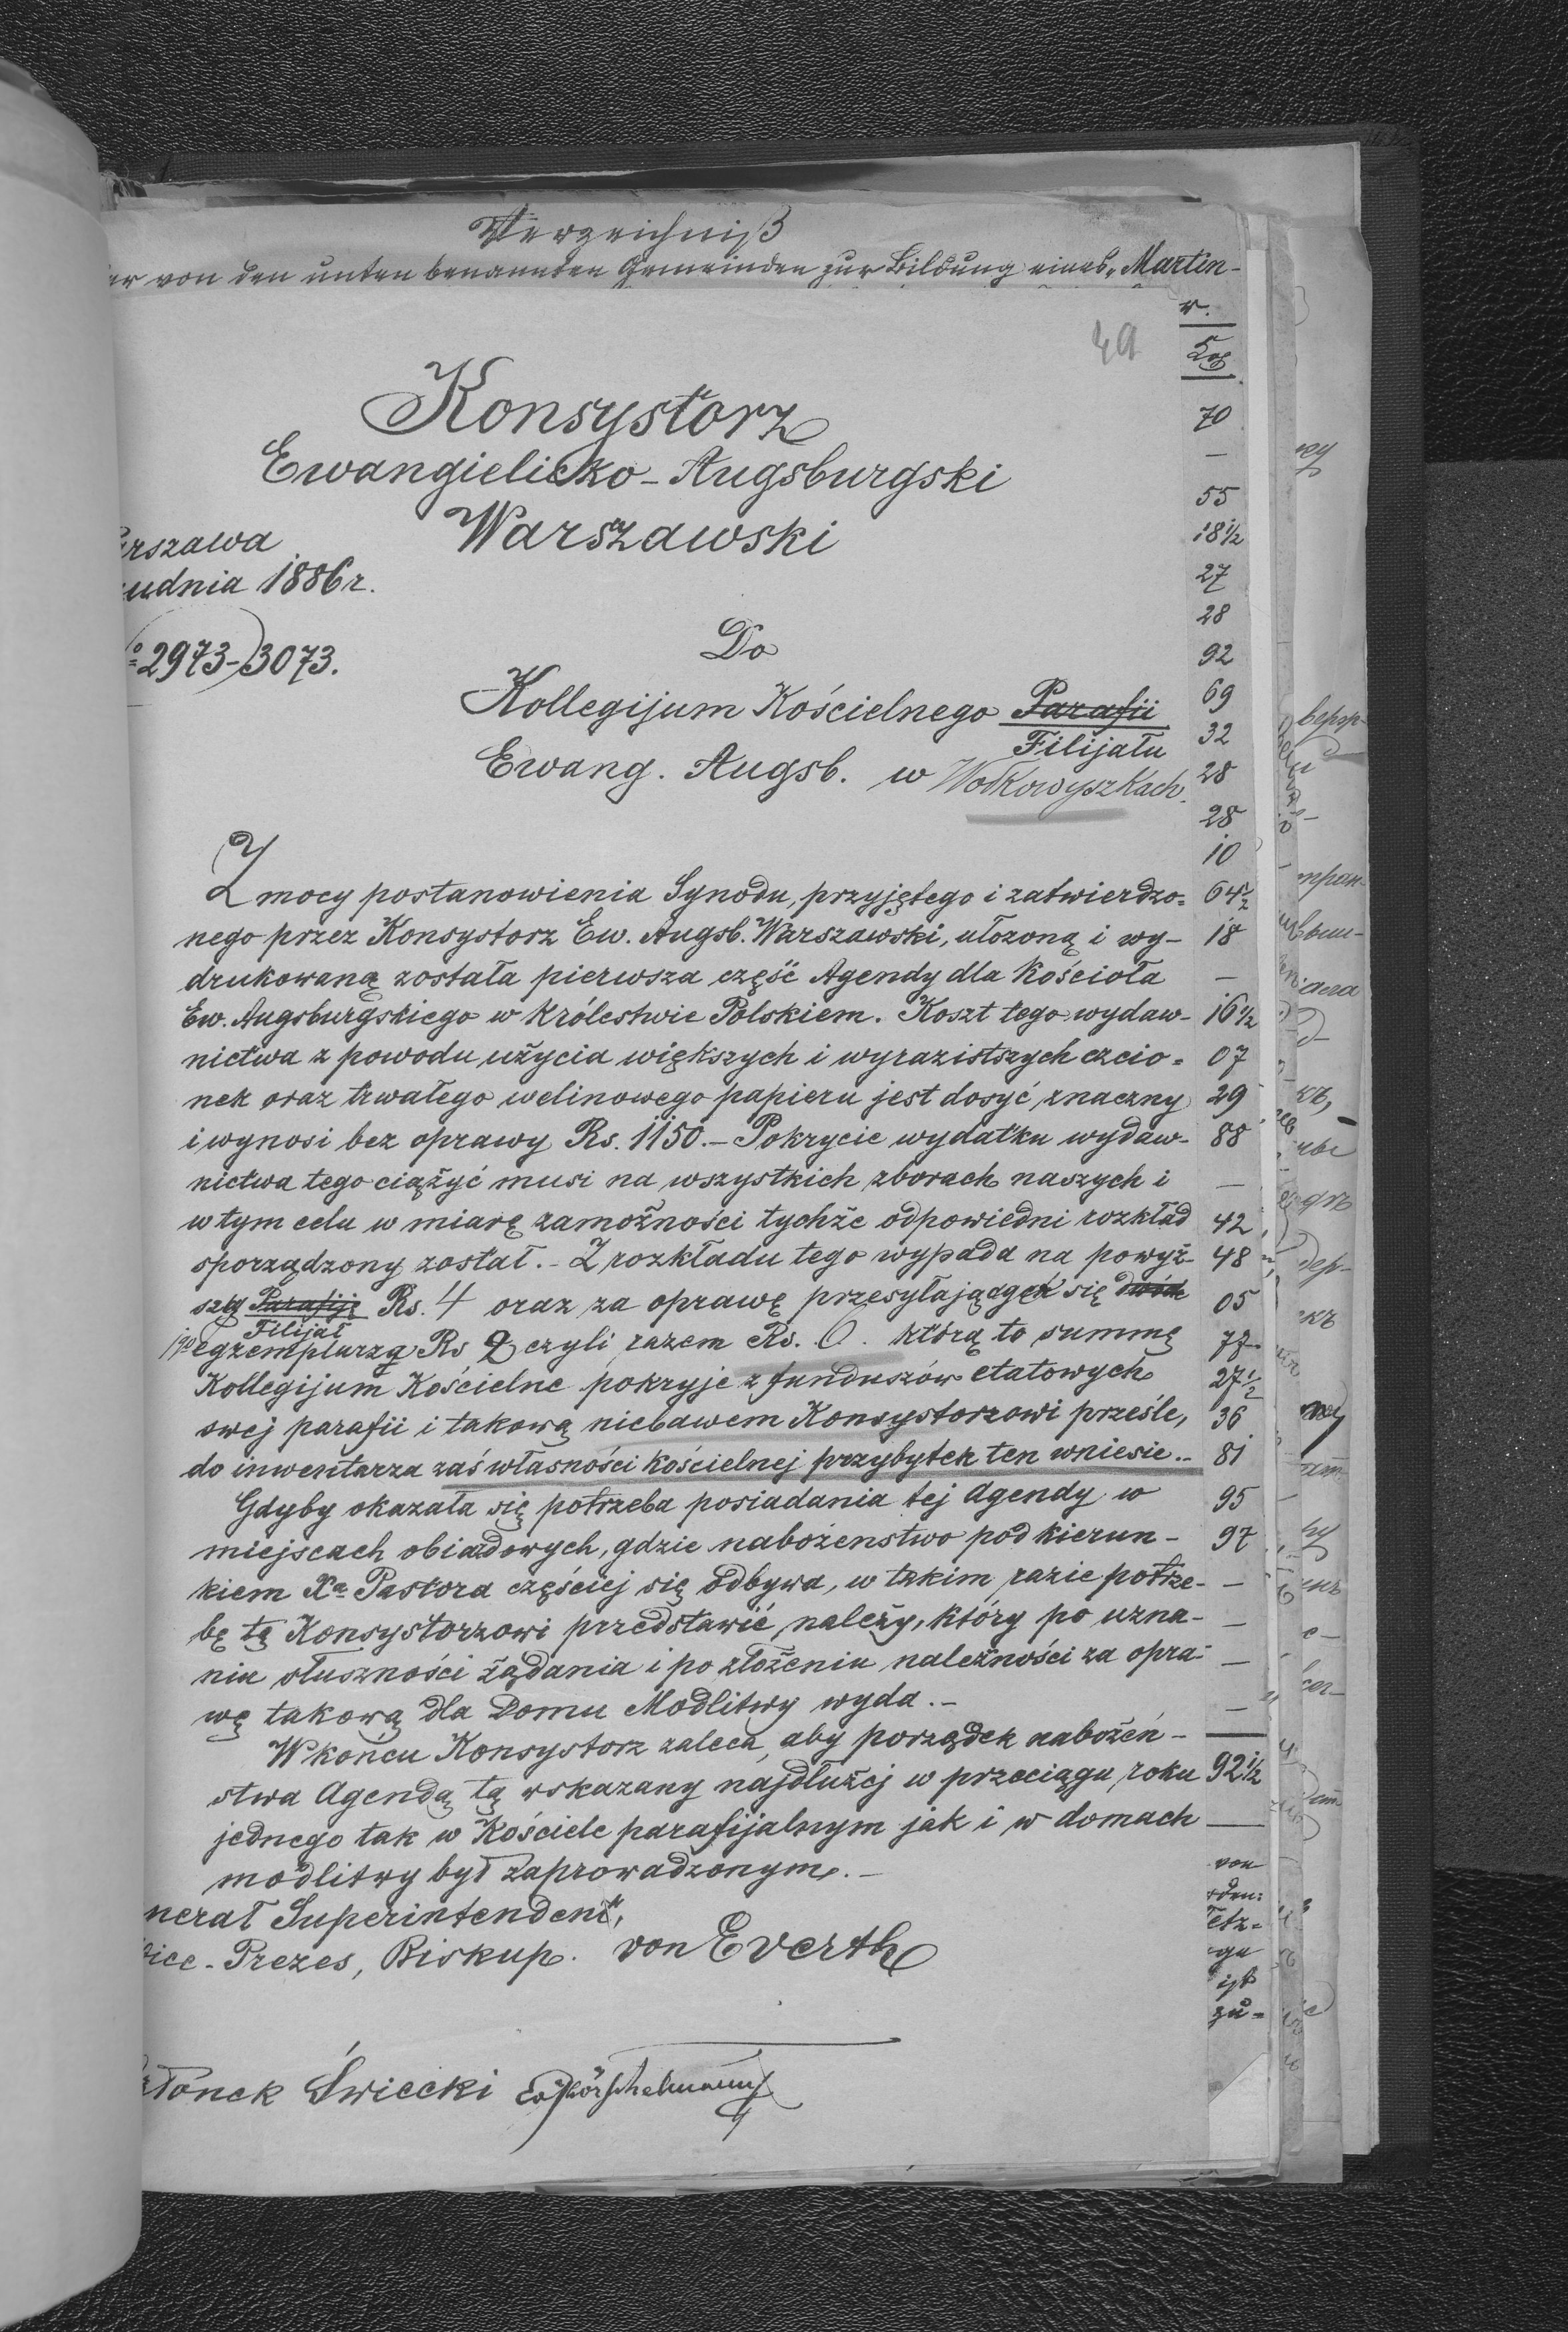 Verzeichniß
er von den unten benannten Gemeinden zur Bildung eines „Martin-
Konsystorz
Ewangielicko-Augsburgski
Warszawski
rszawa
udnia 1886 r.
2973-)3073.
Do
Kollegijum Kościelnego Parafii
Filijału
Ewang. Augsb. w Wołkowyszkach.
Z mocy postanowienia Synodu, przyjętego i zatwierdzo=
nego przez Konsystorz Ew. Augsb. Warszawski, ułożoną i wy-
drukowaną została pierwsza część Agendy dla Kościoła
Ew. Augsburgskiego w Królestwie Polskiem. Koszt tego wydaw-
nictwa z powodu użycia większych i wyrazistszych czcio=
nek oraz trwałego welinowego papieru jest dosyć znaczny
i wynosi bez oprawy Rs. 1150.- Pokrycie wydatku wydaw-
nictwa tego ciążyć musi na wszystkich zborach naszych i
w tym celu w miarę zamożności tychże odpowiedni rozkład
sporządzony został.- Z rozkładu tego wypada na powyż-
szy Parafiję Rs. 4 oraz za oprawę przesyłającgek się dwóch
Filijał
1go egzemplarza Rs 2 czyli razem Rs. 6. którą to summę
Kollegijum Kościelne pokryje z funduszów etatowych
swej parafii i takową niebawem Konsystorzowi prześle,
do inwentarza zaś własności kościelnej przybytek ten wniesie.-
Gdyby okazała się potrzeba posiadania tej Agendy w
miejscach obiazdowych, gdzie nabożenstwo pod kierun-
kiem Xa Pastora częściej się odbywa, w takim razie potrze-
bę tę Konsystorzowi przedstawić należy, który po uzna-
niu słuszności żądania i po złożeniu należności za opra-
wę takową dla Domu Modlitwy wyda.-
W końcu Konsystorz zaleca, aby porządek nabożeń-
stwa Agendą tą wskazany najdłużej w przeciągu roku
jednego tak w Kościele parafijalnym jak i w domach
modlitwy był zaprowadzonym.-
nerał Superintendent,
ice-Prezes, Biskup. von Everth
złonek Świecki
70
55
18 1/2
27
28
92
69
32
28
28
10
64 1/2
18
16 1/2
07
29
88
42
48
05
77
27 1/2
36
81
95
97
92 1/2
von
etz=
ge
ist
zu=